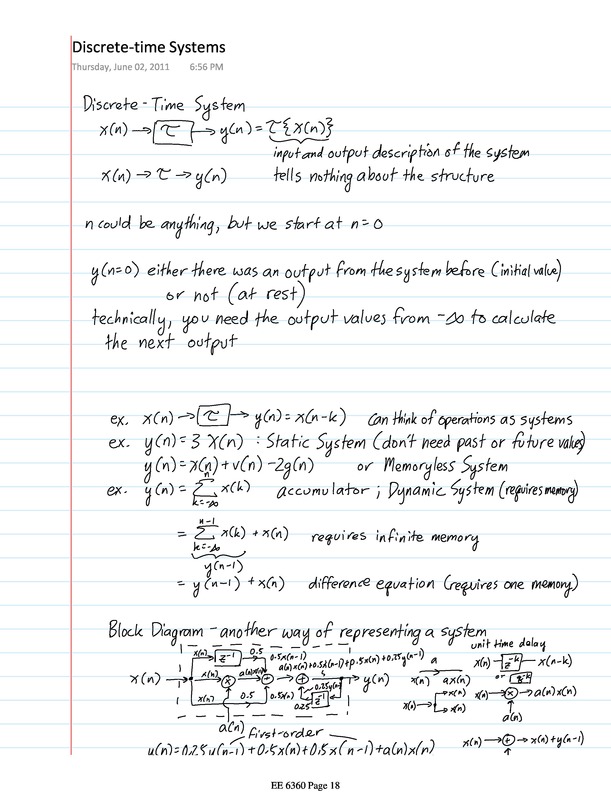 Discrete-time Systems
Thursday, June 02, 2011 6:56 PM
Discrete-Time System
x(n) → τ → y(n) = τ{x(n)}
input and output description of the system
x(n) → τ → y(n) tells nothing about the structure
n could be anything, but we start at n=0
y(n=0) either there was an output from the system before (initial value)
or not (at rest)
technically, you need the output values from -∞ to calculate
the next output
ex. x(n) → τ → y(n) = x(n-k) can think of operations as systems
ex. y(n) = 3 x(n) : Static System (don't need past or future values)
y(n) = x(n) + v(n) - 2g(n) or Memoryless System
ex. y(n) = Σ_{k=-∞}^{n} x(k) accumulator ; Dynamic System (requires memory)
= Σ_{k=-∞}^{n-1} x(k) + x(n) requires infinite memory
y(n-1)
= y(n-1) + x(n) difference equation (requires one memory)
Block Diagram - another way of representing a system
unit time delay
x(n) z^-1 0.5 0.5x(n-1) a(n)x(n)+0.5x(n-1)+0.5x(n)+0.25y(n-1) a x(n) z^-k x(n-k)
or z^-k
x(n) → x(n) × a(n)x(n) + + → y(n) x(n) ax(n)
x(n) 0.5 0.5x(n) 0.25 z^-1 x(n) x(n) x(n) x(n) → × → a(n)x(n)
a(n) a(n)
first-order
y(n) = 0.25y(n-1) + 0.5x(n) + 0.5x(n-1) + a(n)x(n) x(n) → + → x(n) + y(n-1)
EE 6360 Page 18